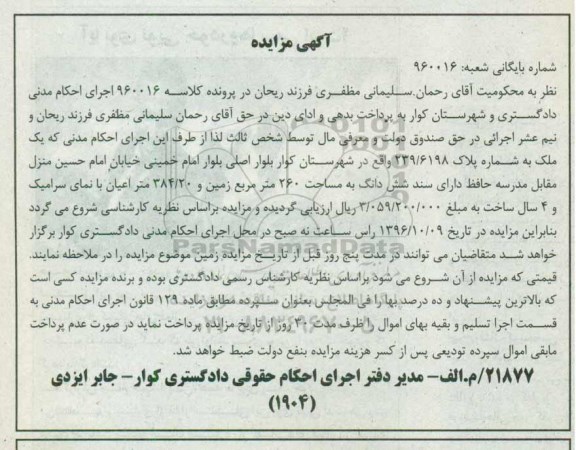 آگهی مزایده
شماره بایگانی شعبه: ۹۶۰۰۱۶
نظر به محکومیت آقای رحمان سلیمانی مظفری فرزند ریحان در پرونده کلاسه ۹۶۰۰۱۶ اجرای احکام مدنی
دادگستری و شهرستان کوار به پرداخت بدهی و ادای دین در حق آقای رحمان سلیمانی مظفری فرزند ریحان و
نیم عشر اجرائی در حق صندوق دولت و معرفی مال توسط شخص ثالث لذا از طرف این اجرای احکام مدنی که یک
ملک به شماره پلاک ۲۳۹/۶۱۹۸ واقع در شهرستان کوار بلوار اصلی بلوار امام خمینی خیابان امام حسین منزل
مقابل مدرسه حافظ دارای سند شش دانگ به مساحت ۲۶۰ متر مربع زمین و ۳۸۴/۲۰ متر اعیان با نمای سرامیک
و ۴ سال ساخت به مبلغ ۳/۰۵۹/۲۰۰/۰۰۰ ریال ارزیابی گردیده و مزایده براساس نظریه کارشناسی شروع می گردد
بنابراین مزایده در تاریخ ۱۳۹۶/۱۰/۰۹ راس ساعت نه صبح در محل اجرای احکام مدنی دادگستری کوار برگزار
خواهد شد متقاضیان می توانند در مدت پنج روز قبل از تاریخ مزایده زمین موضوع مزایده را در ملاحظه نمایند.
قیمتی که مزایده از آن شروع می شود براساس نظریه کارشناس رسمی دادگستری بوده و برنده مزایده کسی است
که بالاترین پیشنهاد و ده درصد بها را فی المجلس بعنوان سپرده مطابق ماده ۱۲۹ قانون اجرای احکام مدنی به
قسمت اجرا تسلیم و بقیه بهای اموال را ظرف مدت ۳۰ روز از تاریخ مزایده پرداخت نماید در صورت عدم پرداخت
مابقی اموال سپرده تودیعی پس از کسر هزینه مزایده بنفع دولت ضبط خواهد شد.
۲۱۸۷۷/م.الف- مدیر دفتر اجرای احکام حقوقی دادگستری کوار- جابر ایزدی
(۱۹۰۴)
ParsNamadData